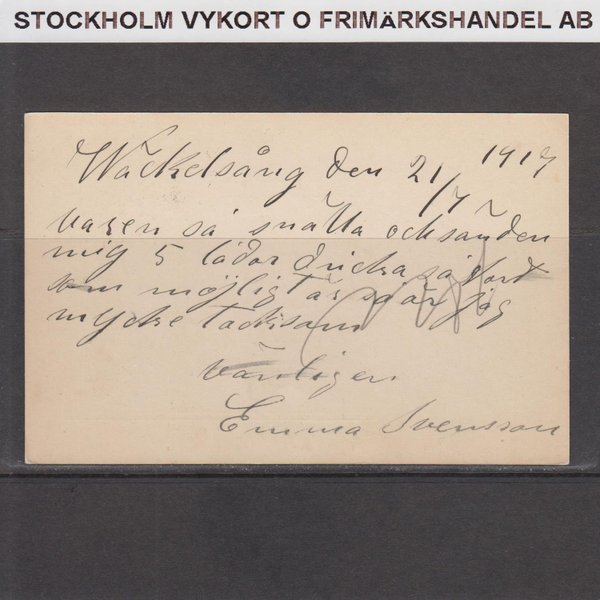 STOCKHOLM VYKORT O FRIMÄRKSHANDEL AB
Wäckelsång den 21/7 1917
varen så snälla och sänden
mig 5 lådor dricka så fort
som möjligt är så är jag
mycke tacksam
Vänligen
Emma Svensson